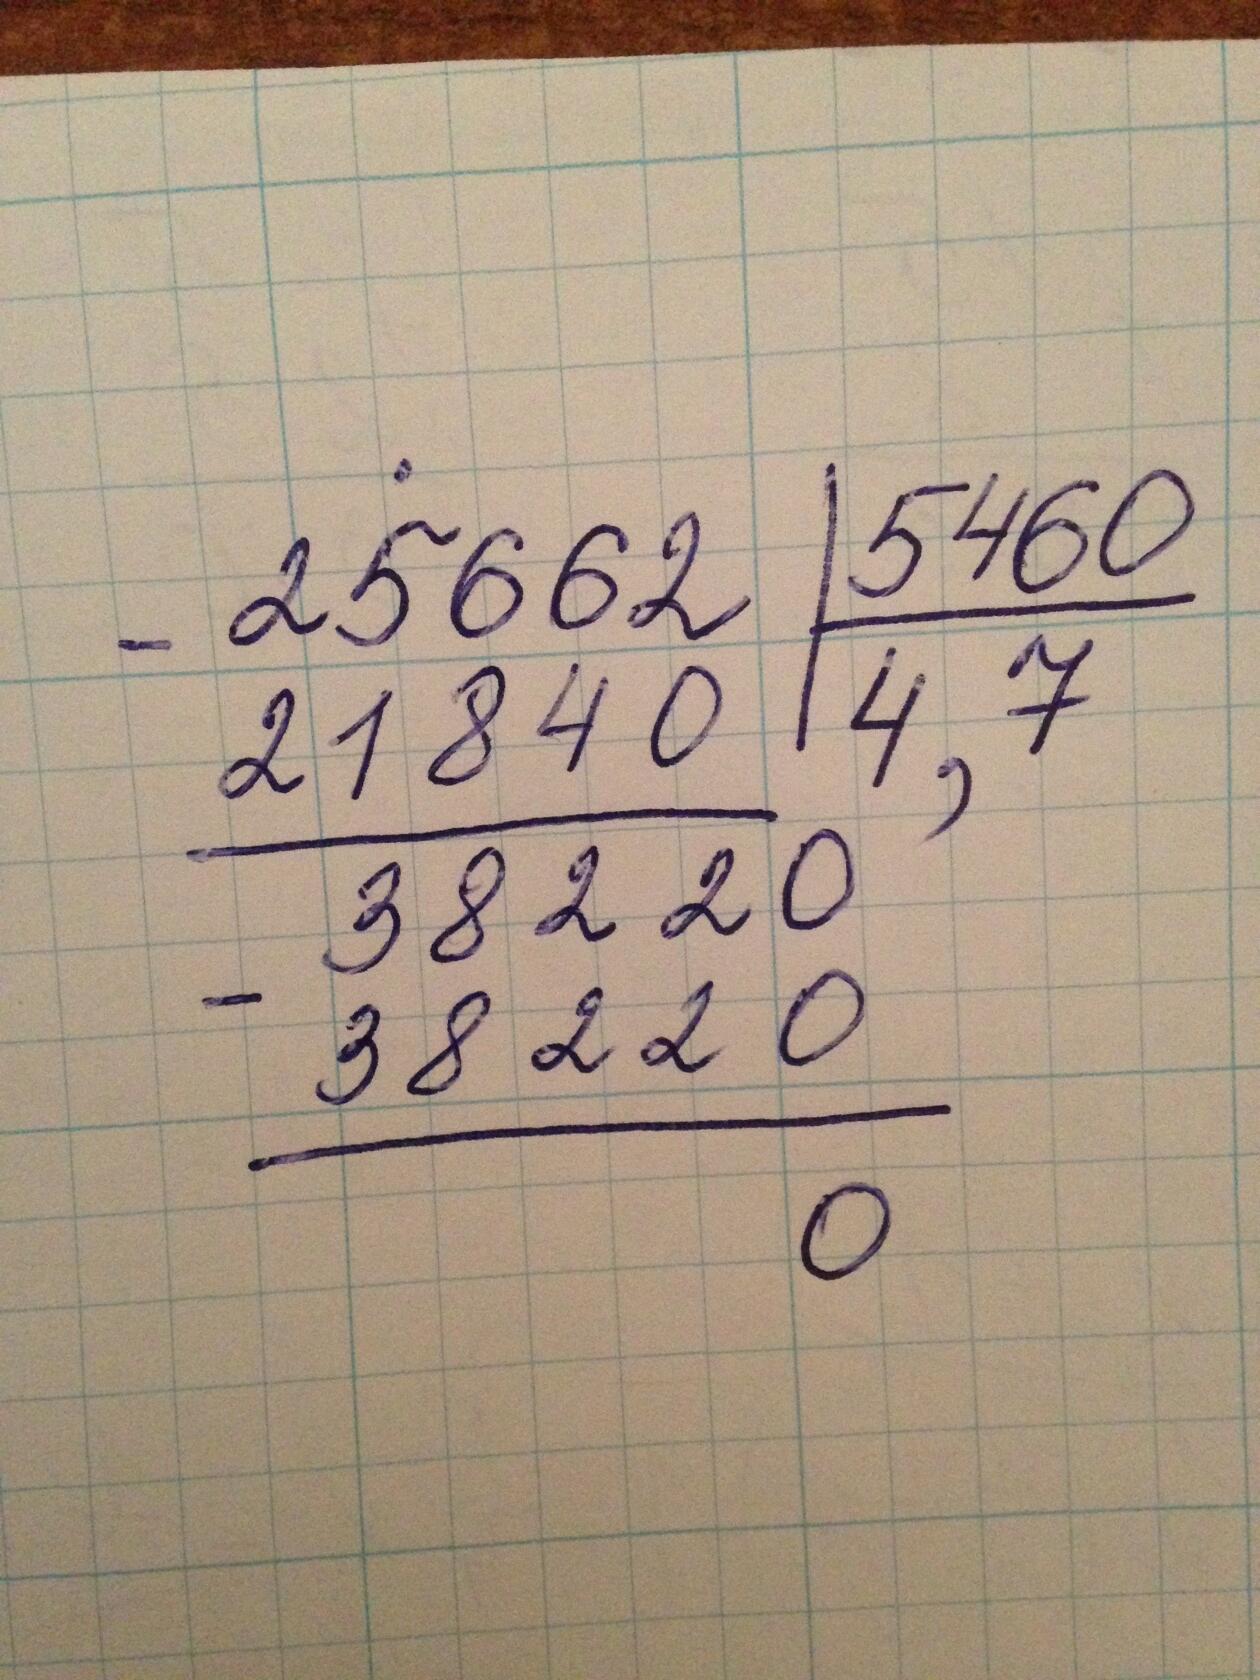 - 25662 | 5460
21840 | 4,7
38220
- 38220
0